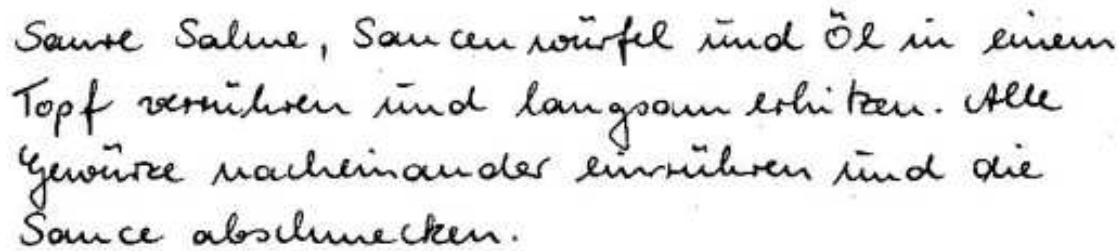 Saure Sahne, Saucenwürfel und Öl in einem
Topf verrühren und langsam erhitzen. Alle
Gewürze nacheinander einrühren und die
Sauce abschmecken.